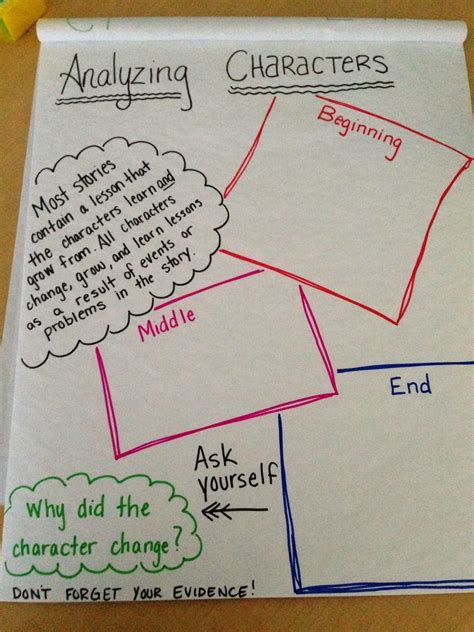 Analyzing Characters
Beginning
Most stories
contain a lesson that
the characters learn and
grow from. All characters
change, grow, and learn lessons
as a result of events or
problems in the story.
Middle
End
Ask
yourself
Why did the
character change?
DON'T FORGET YOUR EVIDENCE!